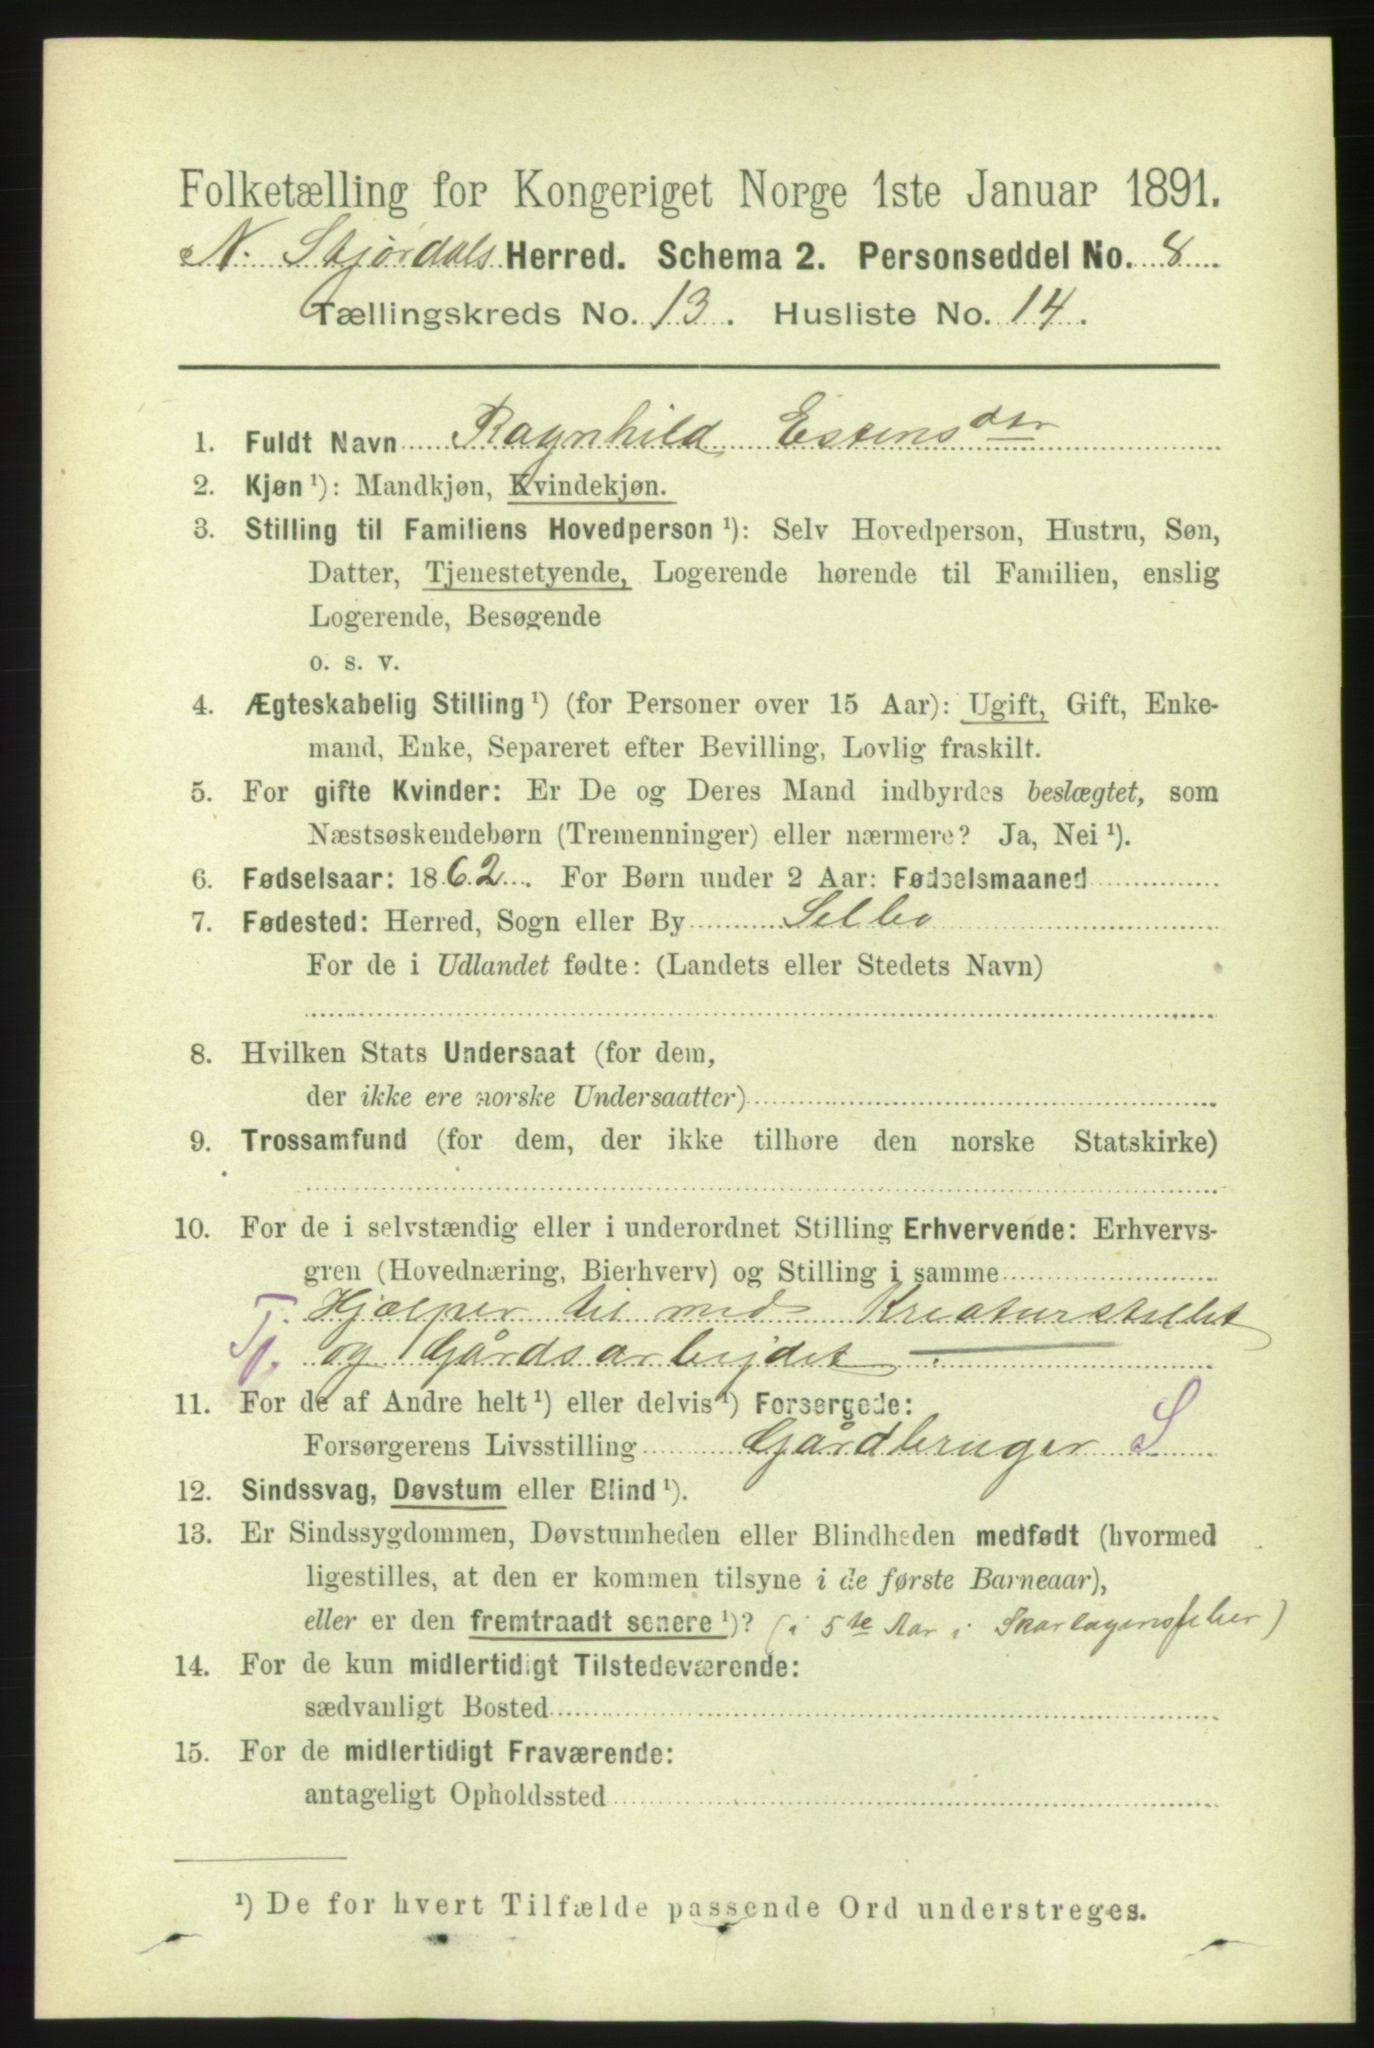 Folketælling for Kongeriget Norge 1ste Januar 1891.
N. Stjørdals Herred. Schema 2. Personseddel No. 8
Tællingskreds No. 13. Husliste No. 14.
1. Fuldt Navn Ragnhild Estensdtr
2. Kjøn ¹): Mandkjøn, Kvindekjøn.
3. Stilling til Familiens Hovedperson ¹): Selv Hovedperson, Hustru, Søn,
Datter, Tjenestetyende, Logerende hørende til Familien, enslig
Logerende, Besøgende
o. s. v.
4. Ægteskabelig Stilling ¹) (for Personer over 15 Aar): Ugift, Gift, Enke-
mand, Enke, Separeret efter Bevilling, Lovlig fraskilt.
5. For gifte Kvinder: Er De og Deres Mand indbyrdes beslægtet, som
Næstsøskendebørn (Tremenninger) eller nærmere? Ja, Nei ¹).
6. Fødselsaar: 1862. For Børn under 2 Aar: Fødselsmaaned
7. Fødested: Herred, Sogn eller By Selbo
For de i Udlandet fødte: (Landets eller Stedets Navn)
8. Hvilken Stats Undersaat (for dem,
der ikke ere norske Undersaatter)
9. Trossamfund (for dem, der ikke tilhøre den norske Statskirke)
10. For de i selvstændig eller i underordnet Stilling Erhvervende: Erhvervs-
gren (Hovednæring, Bierhverv) og Stilling i samme
T. Hjælper til med Kreaturstellet
Tj. og Gårdsarbejdet
11. For de af Andre helt ¹) eller delvis ¹) Forsørgede:
Forsørgerens Livsstilling Gårdbruger S
12. Sindssvag, Døvstum eller Blind ¹).
13. Er Sindssygdommen, Døvstumheden eller Blindheden medfødt (hvormed
ligestilles, at den er kommen tilsyne i de første Barneaar),
eller er den fremtraadt senere ¹)? (i 5te Aar i Skarlagensfeber)
14. For de kun midlertidigt Tilstedeværende:
sædvanligt Bosted
15. For de midlertidigt Fraværende:
antageligt Opholdssted
¹) De for hvert Tilfælde passende Ord understreges.